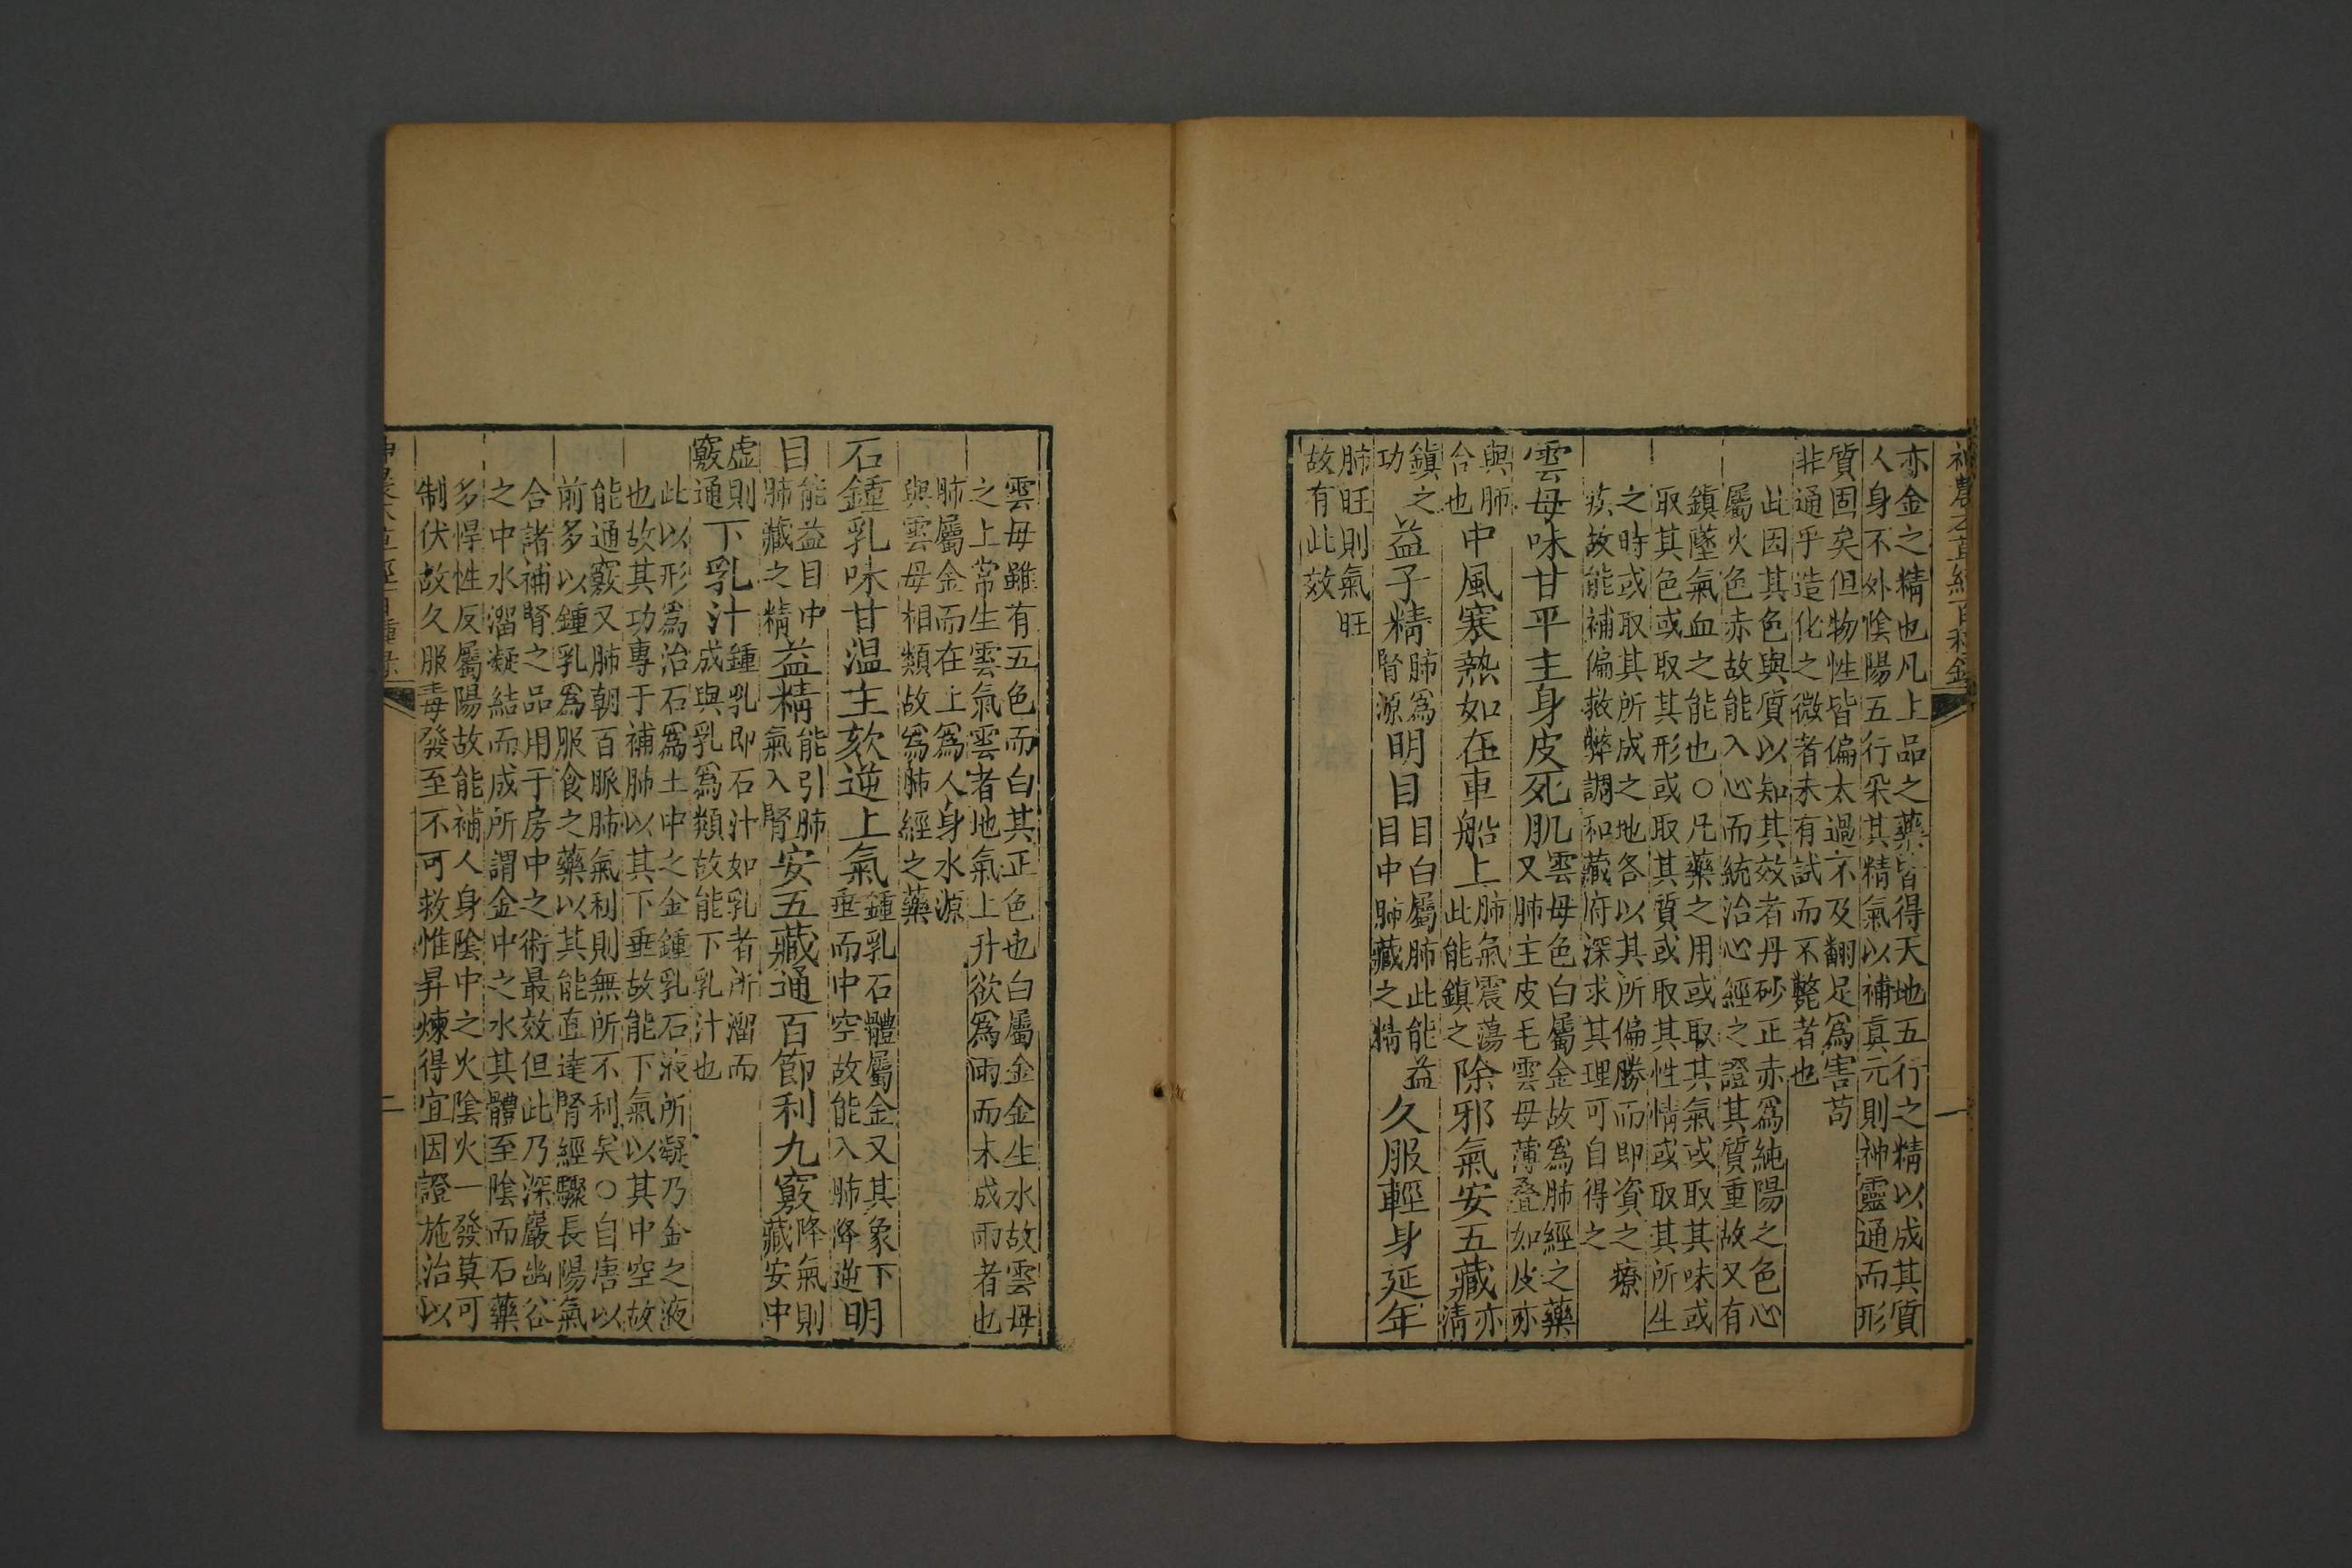 神農本草經百種錄 一
亦金之精也凡上品之藥皆得天地五行之精以成其質
人身不外陰陽五行采其精氣以補真元則神靈通而形
質固矣但物性皆偏太過不及翻足爲害苟
非通乎造化之微者未有試而不斃者也
此因其色與質以知其效者丹砂正赤爲純陽之色心
屬火色赤故能入心而統治心經之證其質重故又有
鎮墜氣血之能也○凡藥之用或取其氣或取其味或
取其色或取其形或取其質或取其性情或取其所生
之時或取其所成之地各以其所偏勝而即資之療
疾故能補偏救弊調和藏府深求其理可自得之
雲母味甘平主身皮死肌雲母色白屬金故爲肺經之藥又肺主皮毛雲母薄疊如皮亦
與肺合也中風寒熱如在車船上肺氣震蕩此能鎮之除邪氣安五藏亦清
鎮之功益子精肺爲腎源明目目白屬肺此能益目中肺藏之精久服輕身延年
肺旺則氣旺
故有此效
雲母雖有五色而白其正色也白屬金金生水故雲母
之上常生雲氣雲者地氣上升欲爲雨而未成雨者也
肺屬金而在上爲人身水源
與雲母相類故爲肺經之藥
石鍾乳味甘温主欬逆上氣鍾乳石體屬金又其象下垂而中空故能入肺降逆明
目能益目中肺藏之精益精能引肺氣入腎安五藏通百節利九竅降氣則藏安中
虚則竅通下乳汁鍾乳即石汁如乳者所溜而成與乳爲類故能下乳汁也
此以形爲治石爲土中之金鍾乳石液所凝乃金之液
也故其功專于補肺以其下垂故能下氣以其中空故
能通竅又肺朝百脈肺氣利則無所不利矣○自唐以
前多以鍾乳爲服食之藥以其能直達腎經驟長陽氣
合諸補腎之品用于房中之術最效但此乃深巖幽谷
之中水溜凝結而成所謂金中之水其體至陰而石藥
多悍性反屬陽故能補人身陰中之火陰火一發莫可
制伏故久服毒發至不可救惟昇煉得宜因證施治以
神農本草經百種錄 二